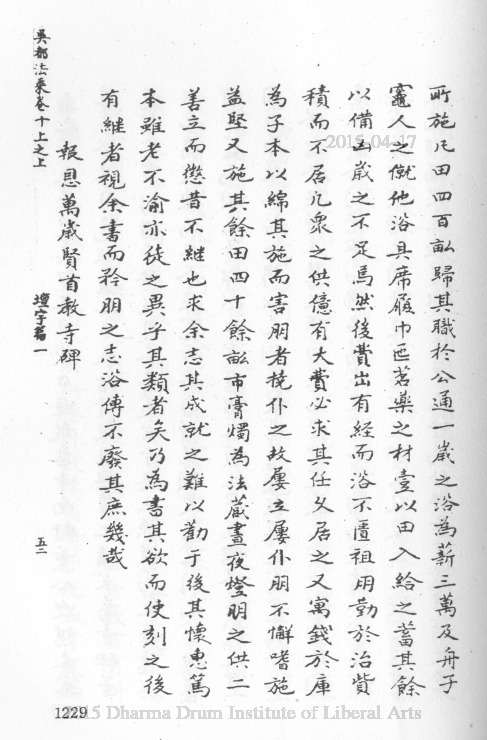 吳都法乘卷十上之上
壇宇篇一
五二
所施凡田四百畝歸其職於公通一歲之浴為薪三萬及舟子
竈人之僦他浴具席履巾匜茗藥之材壹以田入給之蓄其餘
以備凶歲之不足焉然後費出有經而浴不匱祖用勤於治貲
積而不居凡衆之供億有大費必求其任父居之又寓錢於庫
為子本以綿其施而害朋者撓仆之故屢立屢仆朋不懈嗜施
益堅又施其餘田四十餘畝市膏燭為法藏晝夜燈明之供二
善立而懲昔不繼也求余志其成就之難以勸于後其懷惠篤
本雖老不渝亦徒之異乎其類者矣乃為書其欲而使刻之後
有繼者視余書而矜朋之志浴傳不廢其庶幾哉
報恩萬歲賢首教寺碑
1229
2015-04-17
2015 Dharma Drum Institute of Liberal Arts